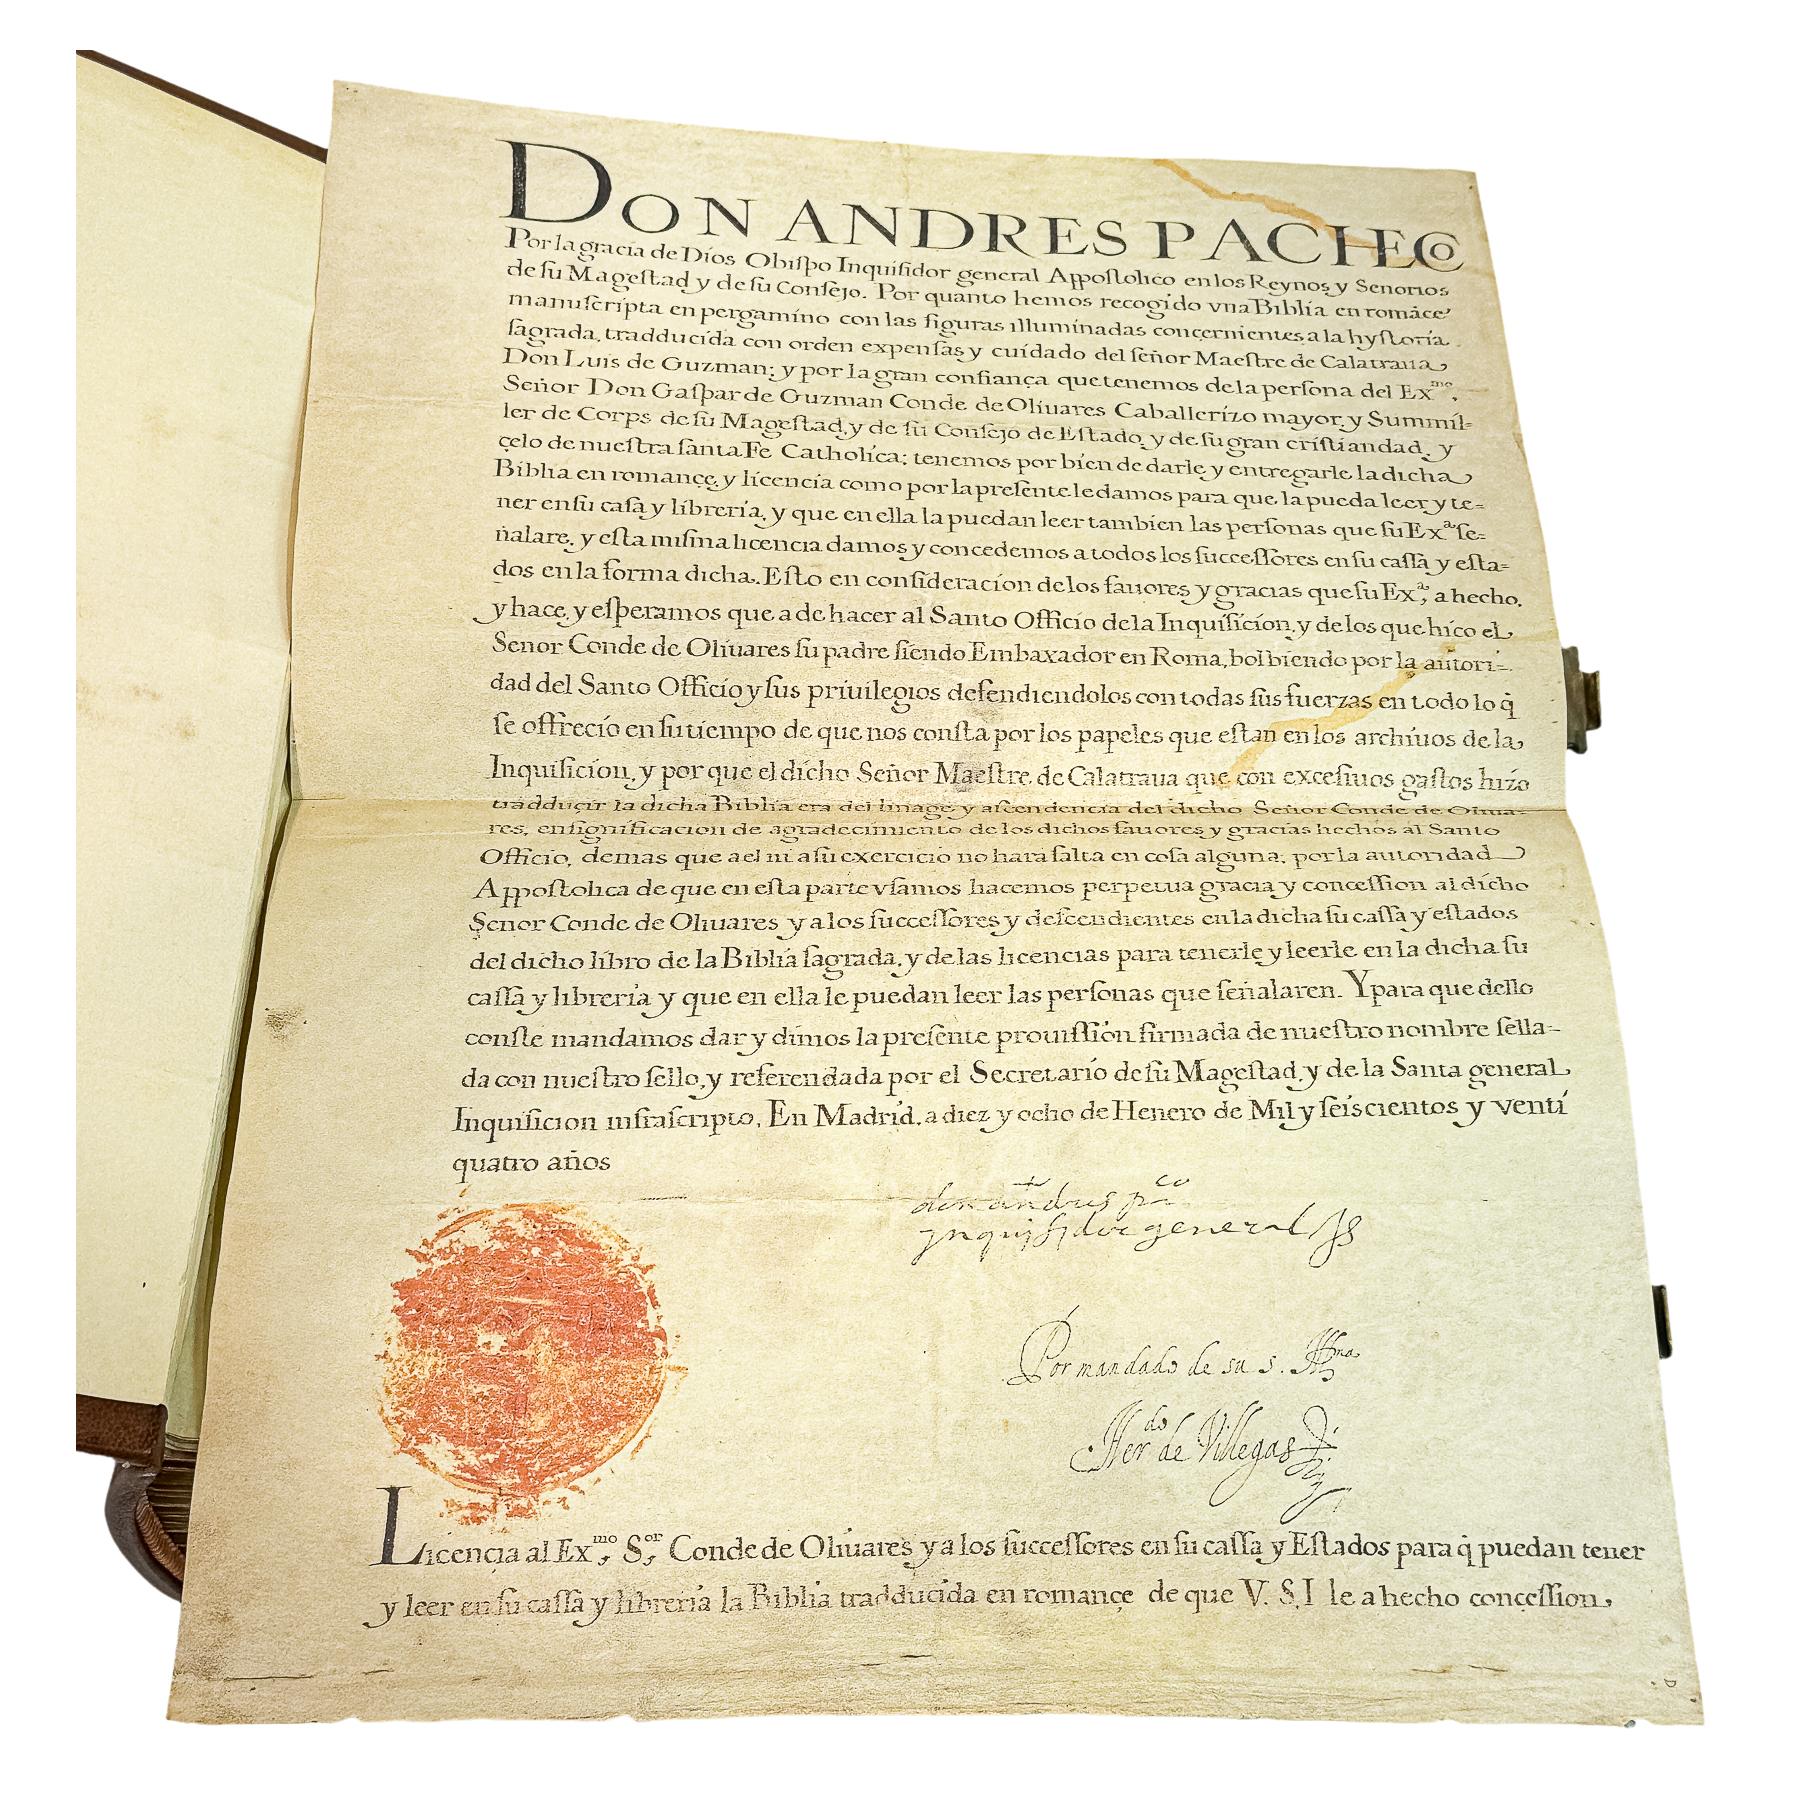 DON ANDRES PACHECO
Por la gracia de Dios Obiſpo Inquiſidor general Appoſtolico en los Reynos y Senorios
de ſu Mageſtad y de ſu Conſejo. Por quanto hemos recogido vna Biblia en romāce
manuſcripta en pergamino con las figuras illuminadas conçernientes a la hyſtoria
ſagrada, tradducida con orden expenſas y cuidado del ſeñor Maeſtre de Calatraua
Don Luis de Guzman; y por la gran confiança que tenemos de la perſona del Exᵐᵒ,
Señor Don Gaſpar de Guzman Conde de Oliuares Caballerizo mayor, y Summil=
ler de Corps de ſu Mageſtad, y de ſu Conſejo de Eſtado, y de ſu gran criſtiandad, y
çelo de nueſtra ſanta Fe Catholica; tenemos por bien de darle y entregarle la dicha
Biblia en romançe, y licencia como por la preſente le damos para que la pueda leer y te=
ner en ſu caſa y libreria, y que en ella la puedan leer tambien las perſonas que ſu Exᵃ ſe=
ñalare, y eſta miſma licencia damos y concedemos a todos los ſucceſſores en ſu caſſa y eſta=
dos en la forma dicha. Eſto en conſideracion de los fauores y gracias que ſu Exᵃ, a hecho,
y hace, y eſperamos que a de hacer al Santo Officio de la Inquiſicion, y de los que hico el
Senor Conde de Oliuares ſu padre ſiendo Embaxador en Roma, bolbiendo por la autori=
dad del Santo Officio y ſus priuilegios defendiendolos con todas ſus fuerzas en todo lo q̃
ſe offrecio en ſu tiempo de que nos conſta por los papeles que eſtan en los archiuos de la
Inquiſicion, y por que el dicho Señor Maeſtre de Calatraua que con exceſiuos gaſtos hizo
tradducir la dicha Biblia era del linage y aſcendencia del dicho Señor Conde de Oliua=
res, en ſignificacion de agradecimiento de los dichos fauores y gracias hechos al Santo
Officio, demas que a el ni a ſu exercicio no hara falta en coſa alguna; por la autoridad
Appoſtolica de que en eſta parte vſamos hacemos perpetua gracia y conceſſion al dicho
Señor Conde de Oliuares y a los ſucceſſores y deſcendientes en la dicha ſu caſſa y eſtados
del dicho libro de la Biblia ſagrada, y de las licencias para tenerle y leerle en la dicha ſu
caſſa y libreria y que en ella le puedan leer las perſonas que ſeñalaren. Y para que dello
conſte mandamos dar y dimos la preſente prouiſſion firmada de nueſtro nombre ſella=
da con nueſtro ſello, y referendada por el Secretario de ſu Mageſtad, y de la Santa general
Inquiſicion infraſcripto, En Madrid, a diez y ocho de Henero de Mil y ſeiscientos y venti
quatro años
don andres pᶜᵒ
ynquisidor general
Por mandado de su s. Illᵐᵃ
Herᵈᵒ de Villegas
Licençia al Exᵐᵒ, Sᵒʳ, Conde de Oliuares y a los ſucceſſores en ſu caſſa y Eſtados para q̃ puedan tener
y leer en ſu caſſa y libreria la Biblia tradducida en romançe de que V. S. I le a hecho conçeſſion,